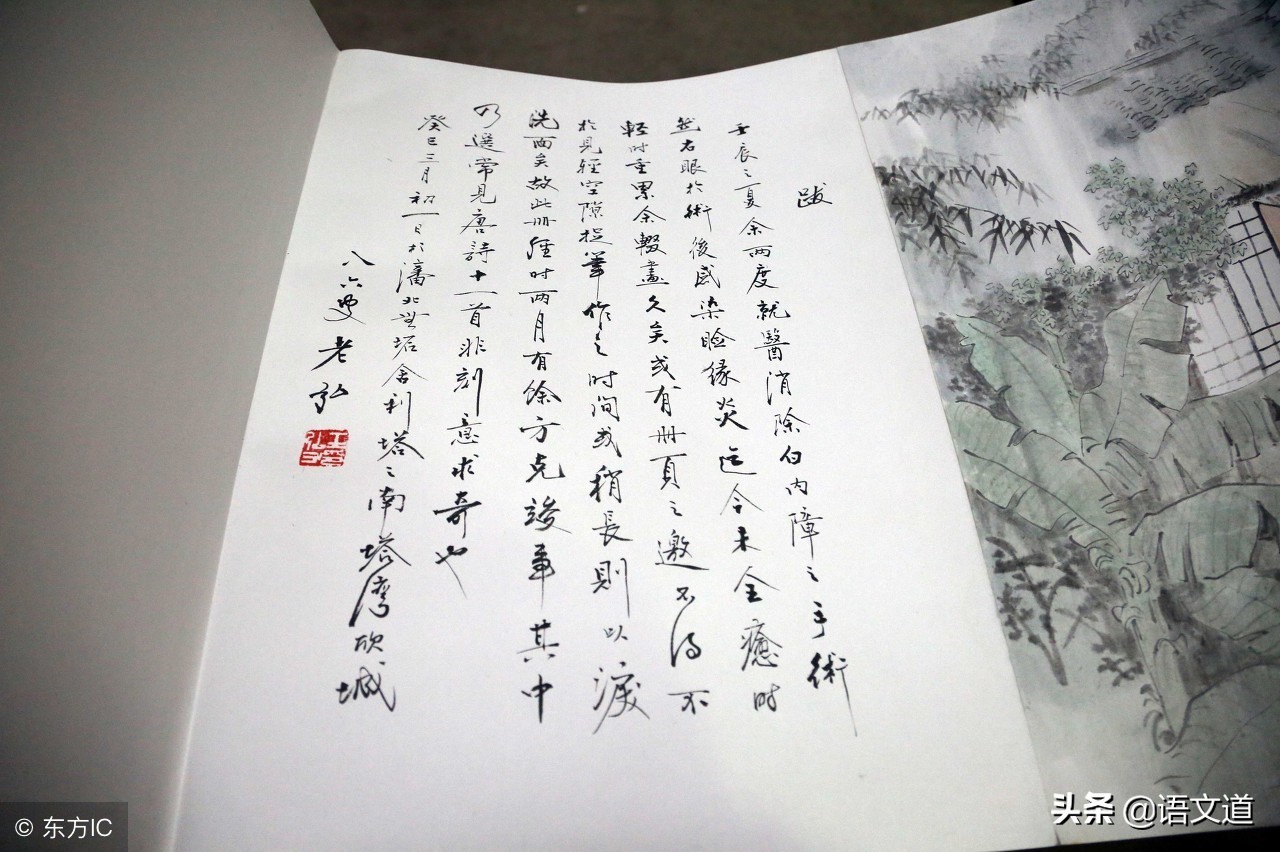 跋
壬辰之夏余两度就醫消除白内障之手術
然右眼於術後感染睑缘炎迄今未全癒时
輕时重累余輟畫久矣或有册頁之邀不得不
於見輕空隙捉筆作之时间或稍長則以淚
洗面矣故此册歷时兩月有馀方克竣事其中
乃選常見唐詩十一首非刻意求奇也
癸巳三月初一日於瀋北無垢舍利塔之南塔湾欣城
八六叟老弘
© 东方IC
头条 @语文道